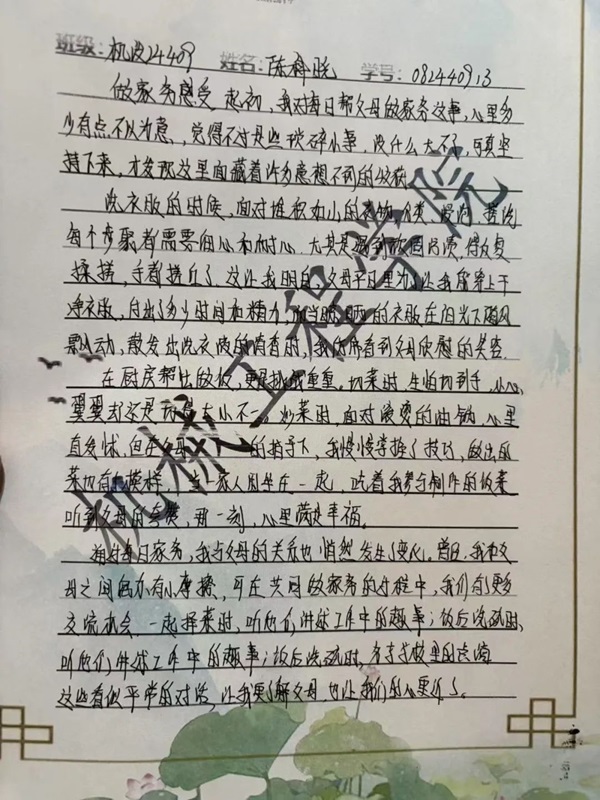 班级:机设24409 姓名:陈科 学号:082440913
做家务感受 起初,我对每日帮父母做家务这事,心里多
少有点不以为意,觉得不过是些琐碎小事,没什么大不了,可真坚
持下来,才发现这里面藏着许多意想不到的收获
洗衣服的时候,面对堆积如小的衣物,分类、浸泡、搓洗
每个步骤都需要细心和耐心。尤其是遇到顽固污渍,得反复
揉搓,手都搓红了。这让我明白,父母平日里为了让我能穿上干
净衣服,付出了多少时间和精力,的衣服在阳光下随风
飘动,散发出洗衣液的清香时,我仿佛看到父母欣慰的笑容
在厨房帮忙做饭,更是挑战重重。切菜时,生怕切到手,小心
翼翼却还是切得大小不一。炒菜时,面对滚烫的油锅,心里
直发怵,但在父母的指导下,我慢慢掌握了技巧,做出的
菜也有模样,当一家人围坐在一起,吃着我参与制作的饭菜
听到父母的夸赞,那一刻,心里满是幸福。
通过每日家务,我与父母的关系也悄然发生了变化。曾日,我和父
母之间偶尔有小摩擦,可在共同做家务的过程中,我们有了更多
交流机会,一起择菜时,听他们讲述工作中的趣事;饭后洗碗时,
听他们讲述工作中的趣事;饭后洗碗时,分享学校里的
这些看似平常的对话,让我更了解父母,也让我们的心更近了。
机械工程学院